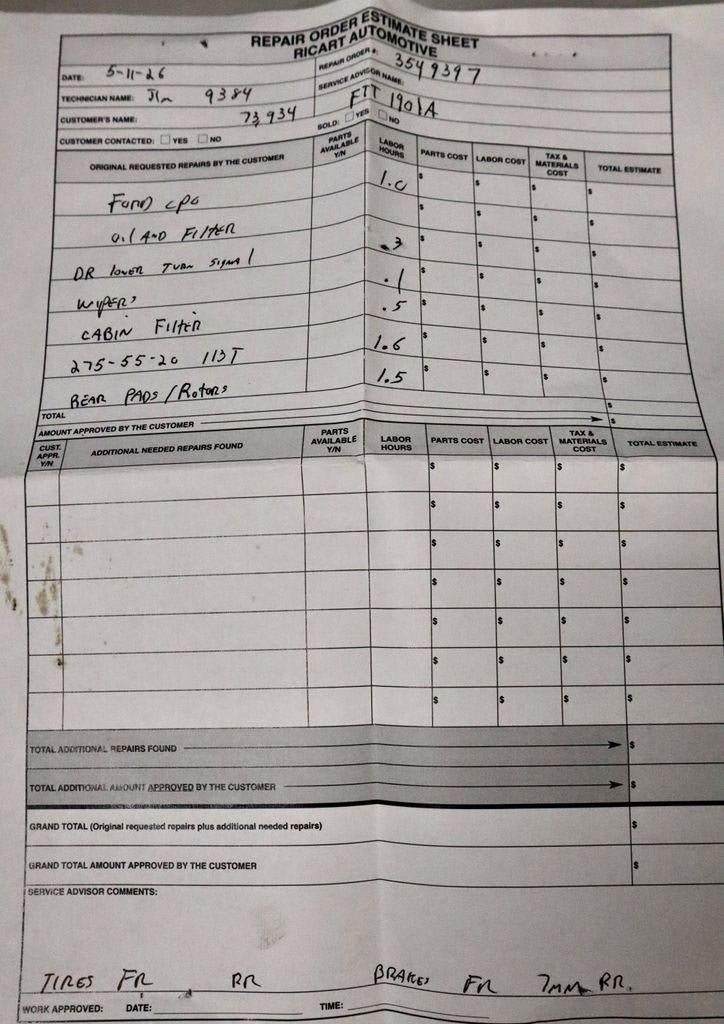 REPAIR ORDER ESTIMATE SHEET
RICART AUTOMOTIVE
DATE: 5-11-26
REPAIR ORDER #: 3549397
TECHNICIAN NAME: Jim 9384
SERVICE ADVISOR NAME:
CUSTOMER'S NAME: 73,934
FTT 1901A
CUSTOMER CONTACTED: ☐ YES ☐ NO
SOLD: ☐ YES ☐ NO
ORIGINAL REQUESTED REPAIRS BY THE CUSTOMER PARTS AVAILABLE Y/N LABOR HOURS PARTS COST LABOR COST TAX & MATERIALS COST TOTAL ESTIMATE
Ford cpo 1.0 $ $ $ $
Oil AND FILTER $ $ $ $
DR lower TURN SIGNAl .3 $ $ $ $
WYPERS .1 $ $ $ $
CABIN FILTER .5 $ $ $ $
275-55-20 113T 1.6 $ $ $ $
REAR PADS/Rotors 1.5 $ $ $ $
TOTAL $
AMOUNT APPROVED BY THE CUSTOMER $
CUST. APPR. Y/N ADDITIONAL NEEDED REPAIRS FOUND PARTS AVAILABLE Y/N LABOR HOURS PARTS COST LABOR COST TAX & MATERIALS COST TOTAL ESTIMATE
$ $ $ $
$ $ $ $
$ $ $ $
$ $ $ $
$ $ $ $
$ $ $ $
$ $ $ $
TOTAL ADDITIONAL REPAIRS FOUND $
TOTAL ADDITIONAL AMOUNT APPROVED BY THE CUSTOMER $
GRAND TOTAL (Original requested repairs plus additional needed repairs) $
GRAND TOTAL AMOUNT APPROVED BY THE CUSTOMER $
SERVICE ADVISOR COMMENTS:
TIRES FR RR BRAKES FR 7MM RR
WORK APPROVED: DATE: TIME: